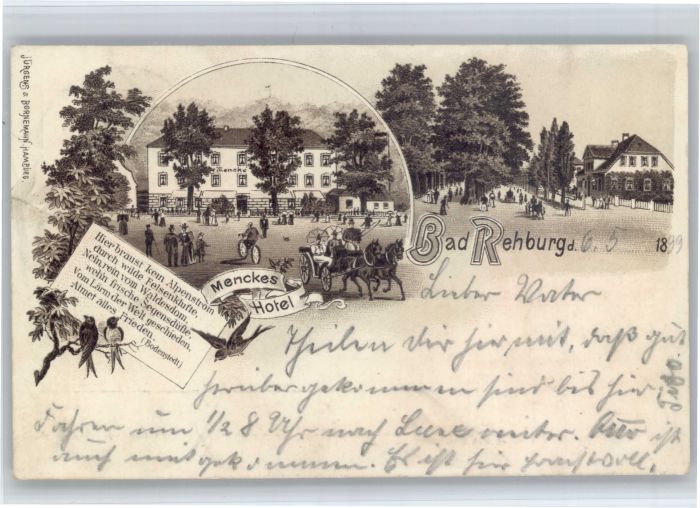 JÜRGENS & BORNEMANN HAMBURG.
Mencke
Hier braust kein Alpenstrom
durch wilde Felsenklüfte,
Nein, rein vom Waldesdom,
wehn frische Segensdüfte,
Vom Lärm der Welt geschieden,
Atmet Alles Frieden.
(Bodenstedt)
Menckes
Hotel
Bad Rehburg d. 6.5 1899
Lieber Vater
Theilen Dir hier mit, daß gut
herübergekommen sind bis hier.
Fahren um 1/2 8 Uhr nach weiter. Otto ist
auch mitgekommen. Es ist hier prachtvoll.